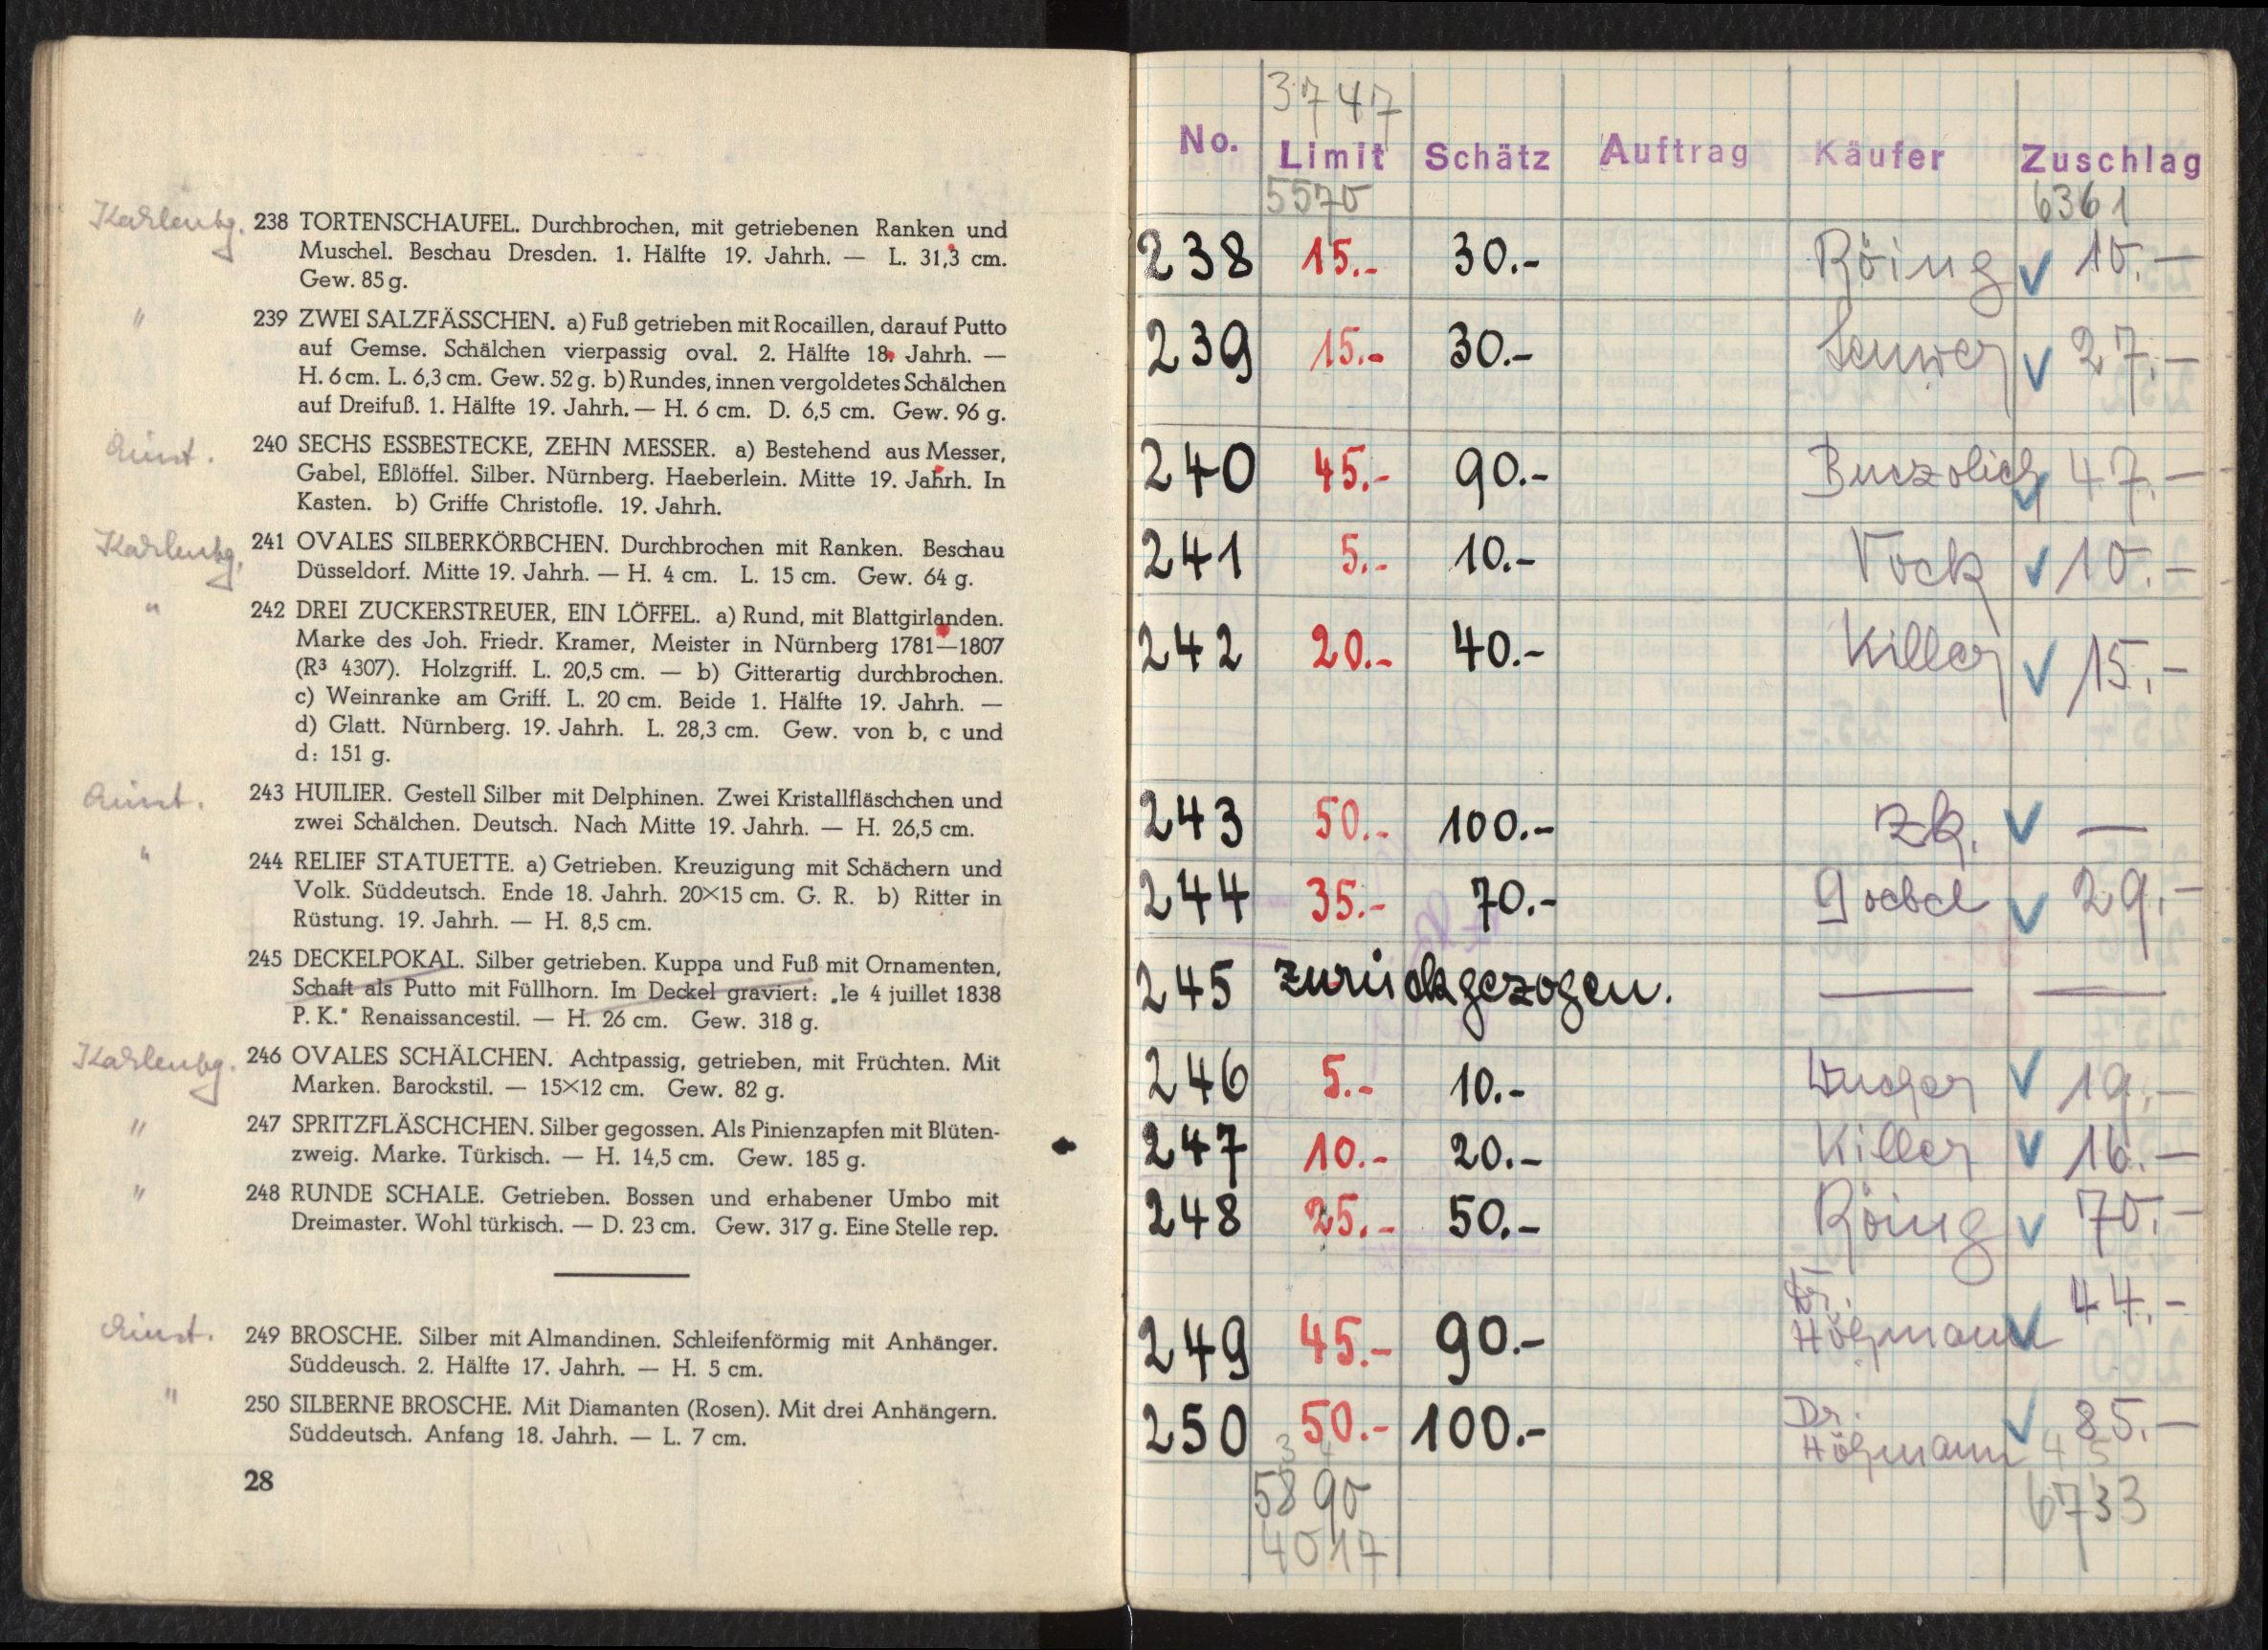 Karlenbg.
238 TORTENSCHAUFEL. Durchbrochen, mit getriebenen Ranken und
Muschel. Beschau Dresden. 1. Hälfte 19. Jahrh. — L. 31,3 cm.
Gew. 85 g.
"
239 ZWEI SALZFÄSSCHEN. a) Fuß getrieben mit Rocaillen, darauf Putto
auf Gemse. Schälchen vierpassig oval. 2. Hälfte 18. Jahrh. —
H. 6 cm. L. 6,3 cm. Gew. 52 g. b) Rundes, innen vergoldetes Schälchen
auf Dreifuß. 1. Hälfte 19. Jahrh. — H. 6 cm. D. 6,5 cm. Gew. 96 g.
240 SECHS ESSBESTECKE, ZEHN MESSER. a) Bestehend aus Messer,
Gabel, Eßlöffel. Silber. Nürnberg. Haeberlein. Mitte 19. Jahrh. In
Kasten. b) Griffe Christofle. 19. Jahrh.
Karlenbg.
241 OVALES SILBERKÖRBCHEN. Durchbrochen mit Ranken. Beschau
Düsseldorf. Mitte 19. Jahrh. — H. 4 cm. L. 15 cm. Gew. 64 g.
"
242 DREI ZUCKERSTREUER, EIN LÖFFEL. a) Rund, mit Blattgirlanden.
Marke des Joh. Friedr. Kramer, Meister in Nürnberg 1781—1807
(R³ 4307). Holzgriff. L. 20,5 cm. — b) Gitterartig durchbrochen.
c) Weinranke am Griff. L. 20 cm. Beide 1. Hälfte 19. Jahrh. —
d) Glatt. Nürnberg. 19. Jahrh. L. 28,3 cm. Gew. von b, c und
d: 151 g.
243 HUILIER. Gestell Silber mit Delphinen. Zwei Kristallfläschchen und
zwei Schälchen. Deutsch. Nach Mitte 19. Jahrh. — H. 26,5 cm.
"
244 RELIEF STATUETTE. a) Getrieben. Kreuzigung mit Schächern und
Volk. Süddeutsch. Ende 18. Jahrh. 20×15 cm. G. R. b) Ritter in
Rüstung. 19. Jahrh. — H. 8,5 cm.
245 DECKELPOKAL. Silber getrieben. Kuppa und Fuß mit Ornamenten,
Schaft als Putto mit Füllhorn. Im Deckel graviert: „le 4 juillet 1838
P. K." Renaissancestil. — H. 26 cm. Gew. 318 g.
Karlenbg.
246 OVALES SCHÄLCHEN. Achtpassig, getrieben, mit Früchten. Mit
Marken. Barockstil. — 15×12 cm. Gew. 82 g.
"
247 SPRITZFLÄSCHCHEN. Silber gegossen. Als Pinienzapfen mit Blüten-
zweig. Marke. Türkisch. — H. 14,5 cm. Gew. 185 g.
"
248 RUNDE SCHALE. Getrieben. Bossen und erhabener Umbo mit
Dreimaster. Wohl türkisch. — D. 23 cm. Gew. 317 g. Eine Stelle rep.
249 BROSCHE. Silber mit Almandinen. Schleifenförmig mit Anhänger.
Süddeusch. 2. Hälfte 17. Jahrh. — H. 5 cm.
"
250 SILBERNE BROSCHE. Mit Diamanten (Rosen). Mit drei Anhängern.
Süddeutsch. Anfang 18. Jahrh. — L. 7 cm.
28
3747
No. Limit Schätz Auftrag Käufer Zuschlag
5570 6361
238 15.- 30.- Röing ✓ 10.—
239 15.- 30.- ✓ 27.—
240 45.- 90.- ✓ 47.—
241 5.- 10.- Vock ✓ 10.—
242 20.- 40.- Killer ✓ 15.-
243 50.- 100.- zk. ✓ —
244 35.- 70.- Goebel ✓ 29.-
245 zurückgezogen. — —
246 5.- 10.- ✓ 19.—
247 10.- 20.- Killer ✓ 16.—
248 25.- 50.- Röing ✓ 70.-
249 45.- 90.- Dr. Höhmann ✓ 44.-
250 50.- 100.- Dr. Höhmann ✓ 85.—
3 4 4 5
5890 6733
4017